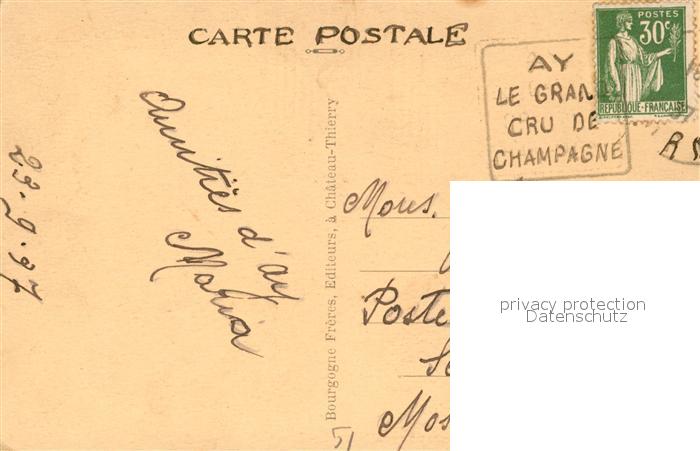 CARTE POSTALE
POSTES
30c
REPUBLIQUE-FRANCAISE
AY
LE GRAND
CRU DE
CHAMPAGNE
Amitiés d'ay
Maria
23.9.37
Bourgogne Frères, Editeurs, à Château-Thierry
Mons.
Poste
Mos
51
privacy protection
Datenschutz